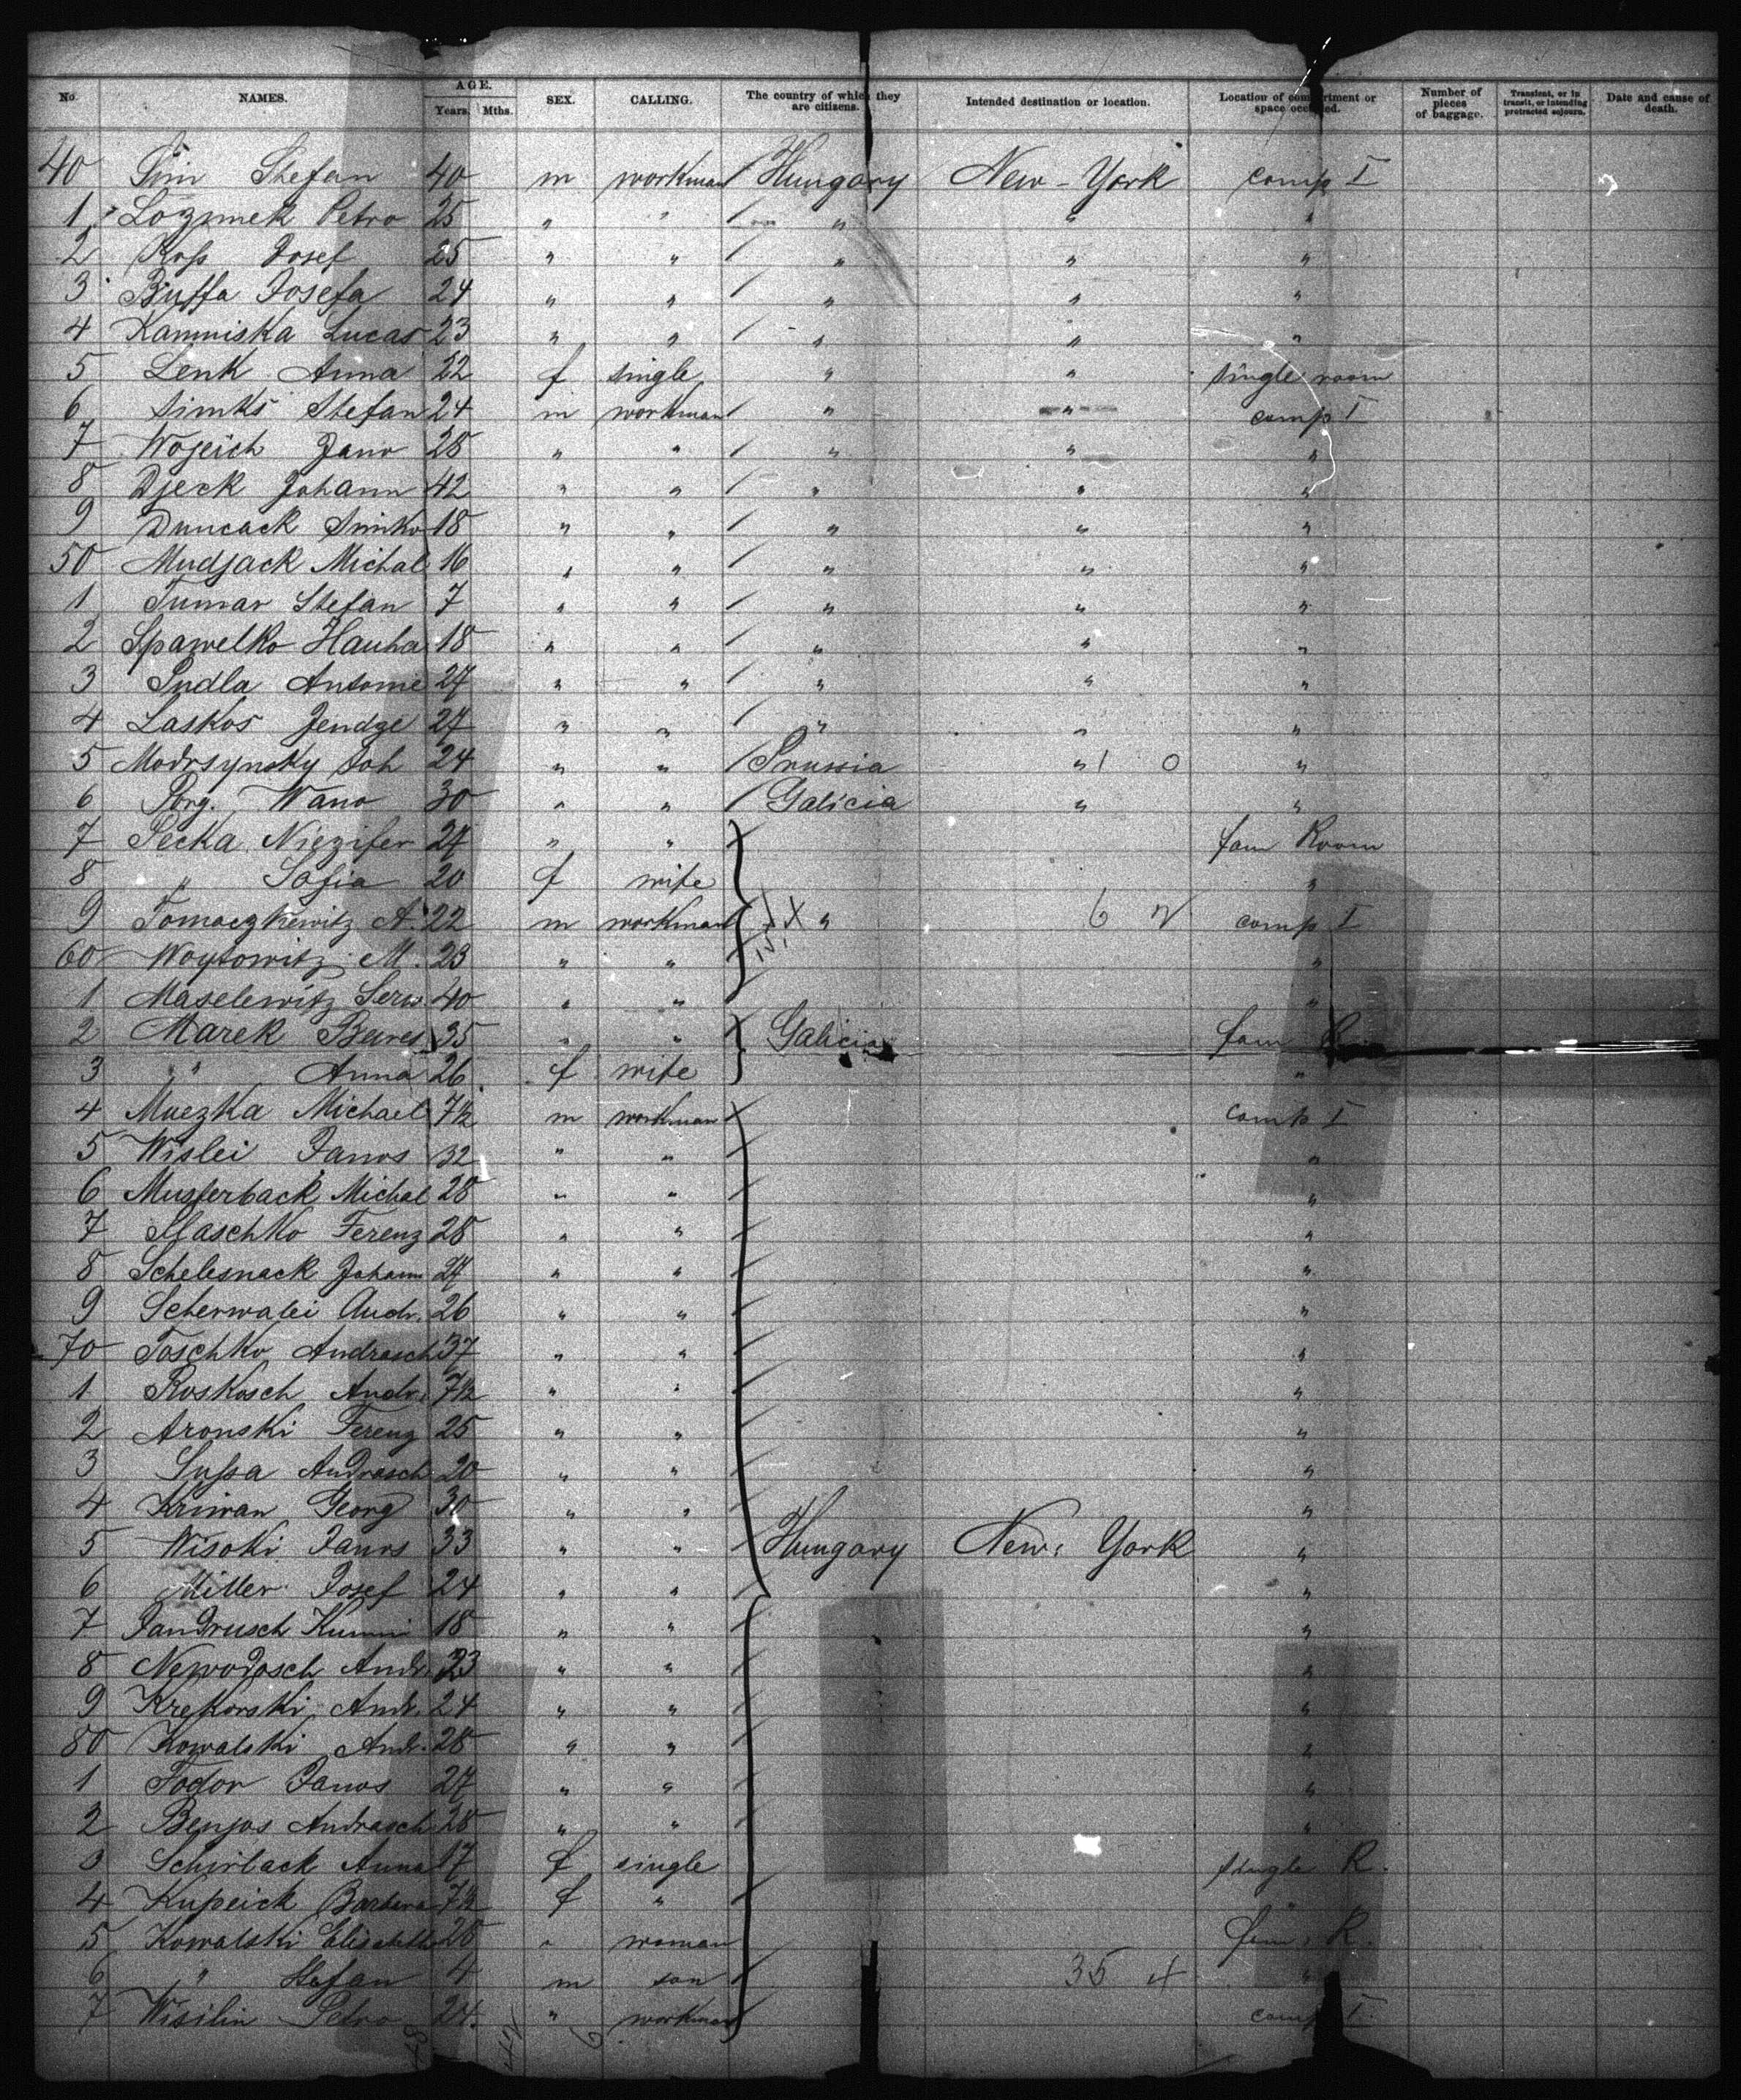 No. NAMES. AGE. Years. Mths. SEX. CALLING. The country of which they are citizens. Intended destination or location. Location of compartment or space occupied. Number of pieces of baggage. Transient, or in transit, or intending protracted sojourn. Date and cause of death.
40 Sim Stefan 40 m workman Hungary New-York comp I
1 Lozimek Petro 25 " " " " "
2 Koss Josef 25 " " " " "
3 Buffa Josefa 24 " " " " "
4 Kamniska Lucas 23 " " " " "
5 Lenk Anna 22 f single " " single room
6 Simko Stefan 24 m workman " " comp I
7 Wojeich Jano 28 " " " " "
8 Djeck Johann 42 " " " " "
9 Duncack Simko 18 " " " " "
50 Mudjack Michal 16 " " " " "
1 Tumar Stefan 7 " " " " "
2 Spawelko Hauha 18 " " " " "
3 Pudla Antome 27 " " " " "
4 Laskos Jendge 27 " " " " "
5 Modrsynsky Joh 24 " " Prussia " 1 0 "
6 Porg. Wano 30 " " Galicia " "
7 Pecka Niezifer 27 " " fam Room
8 " Sofia 20 f wife "
9 Tomaezkewitz A. 22 m workman " 6 comp I
60 Woytowitz M. 23 " " "
1 Maselewitz Serw. 40 " " "
2 Marek Beires 35 " " Galicia fam R
3 " Anna 26 f wife "
4 Muezka Michael 7½ m workman comp I
5 Wislei Janos 32 " " "
6 Musterback Michal 28 " " "
7 Slaschko Ferenz 28 " " "
8 Schelesnack Johann 27 " " "
9 Scherwalei Andr. 26 " " "
70 Toschko Andrasch 37 " " "
1 Roskosch Andr. 7½ " " "
2 Aronski Ferenz 25 " " "
3 Sussa Andrasch 20 " " "
4 Kriwan Georg 30 " " "
5 Wisoki Janos 33 " " Hungary New York "
6 Miller Josef 24 " " "
7 Jandrusch Kumm 18 " " "
8 Newodosch Andr. 23 " " "
9 Krekorski Andr. 24 " " "
80 Kowalski Andr. 28 " " "
1 Fodor Janos 27 " " "
2 Benjos Andrasch 28 " " "
3 Schirback Anna 17 f single single R.
4 Kupeick Barbara 7½ f " "
5 Kowalski Elisabeth 28 " woman fam. R.
6 " Stefan 4 m son 35 4 "
7 Wisilin Petro 24 " workman comp I